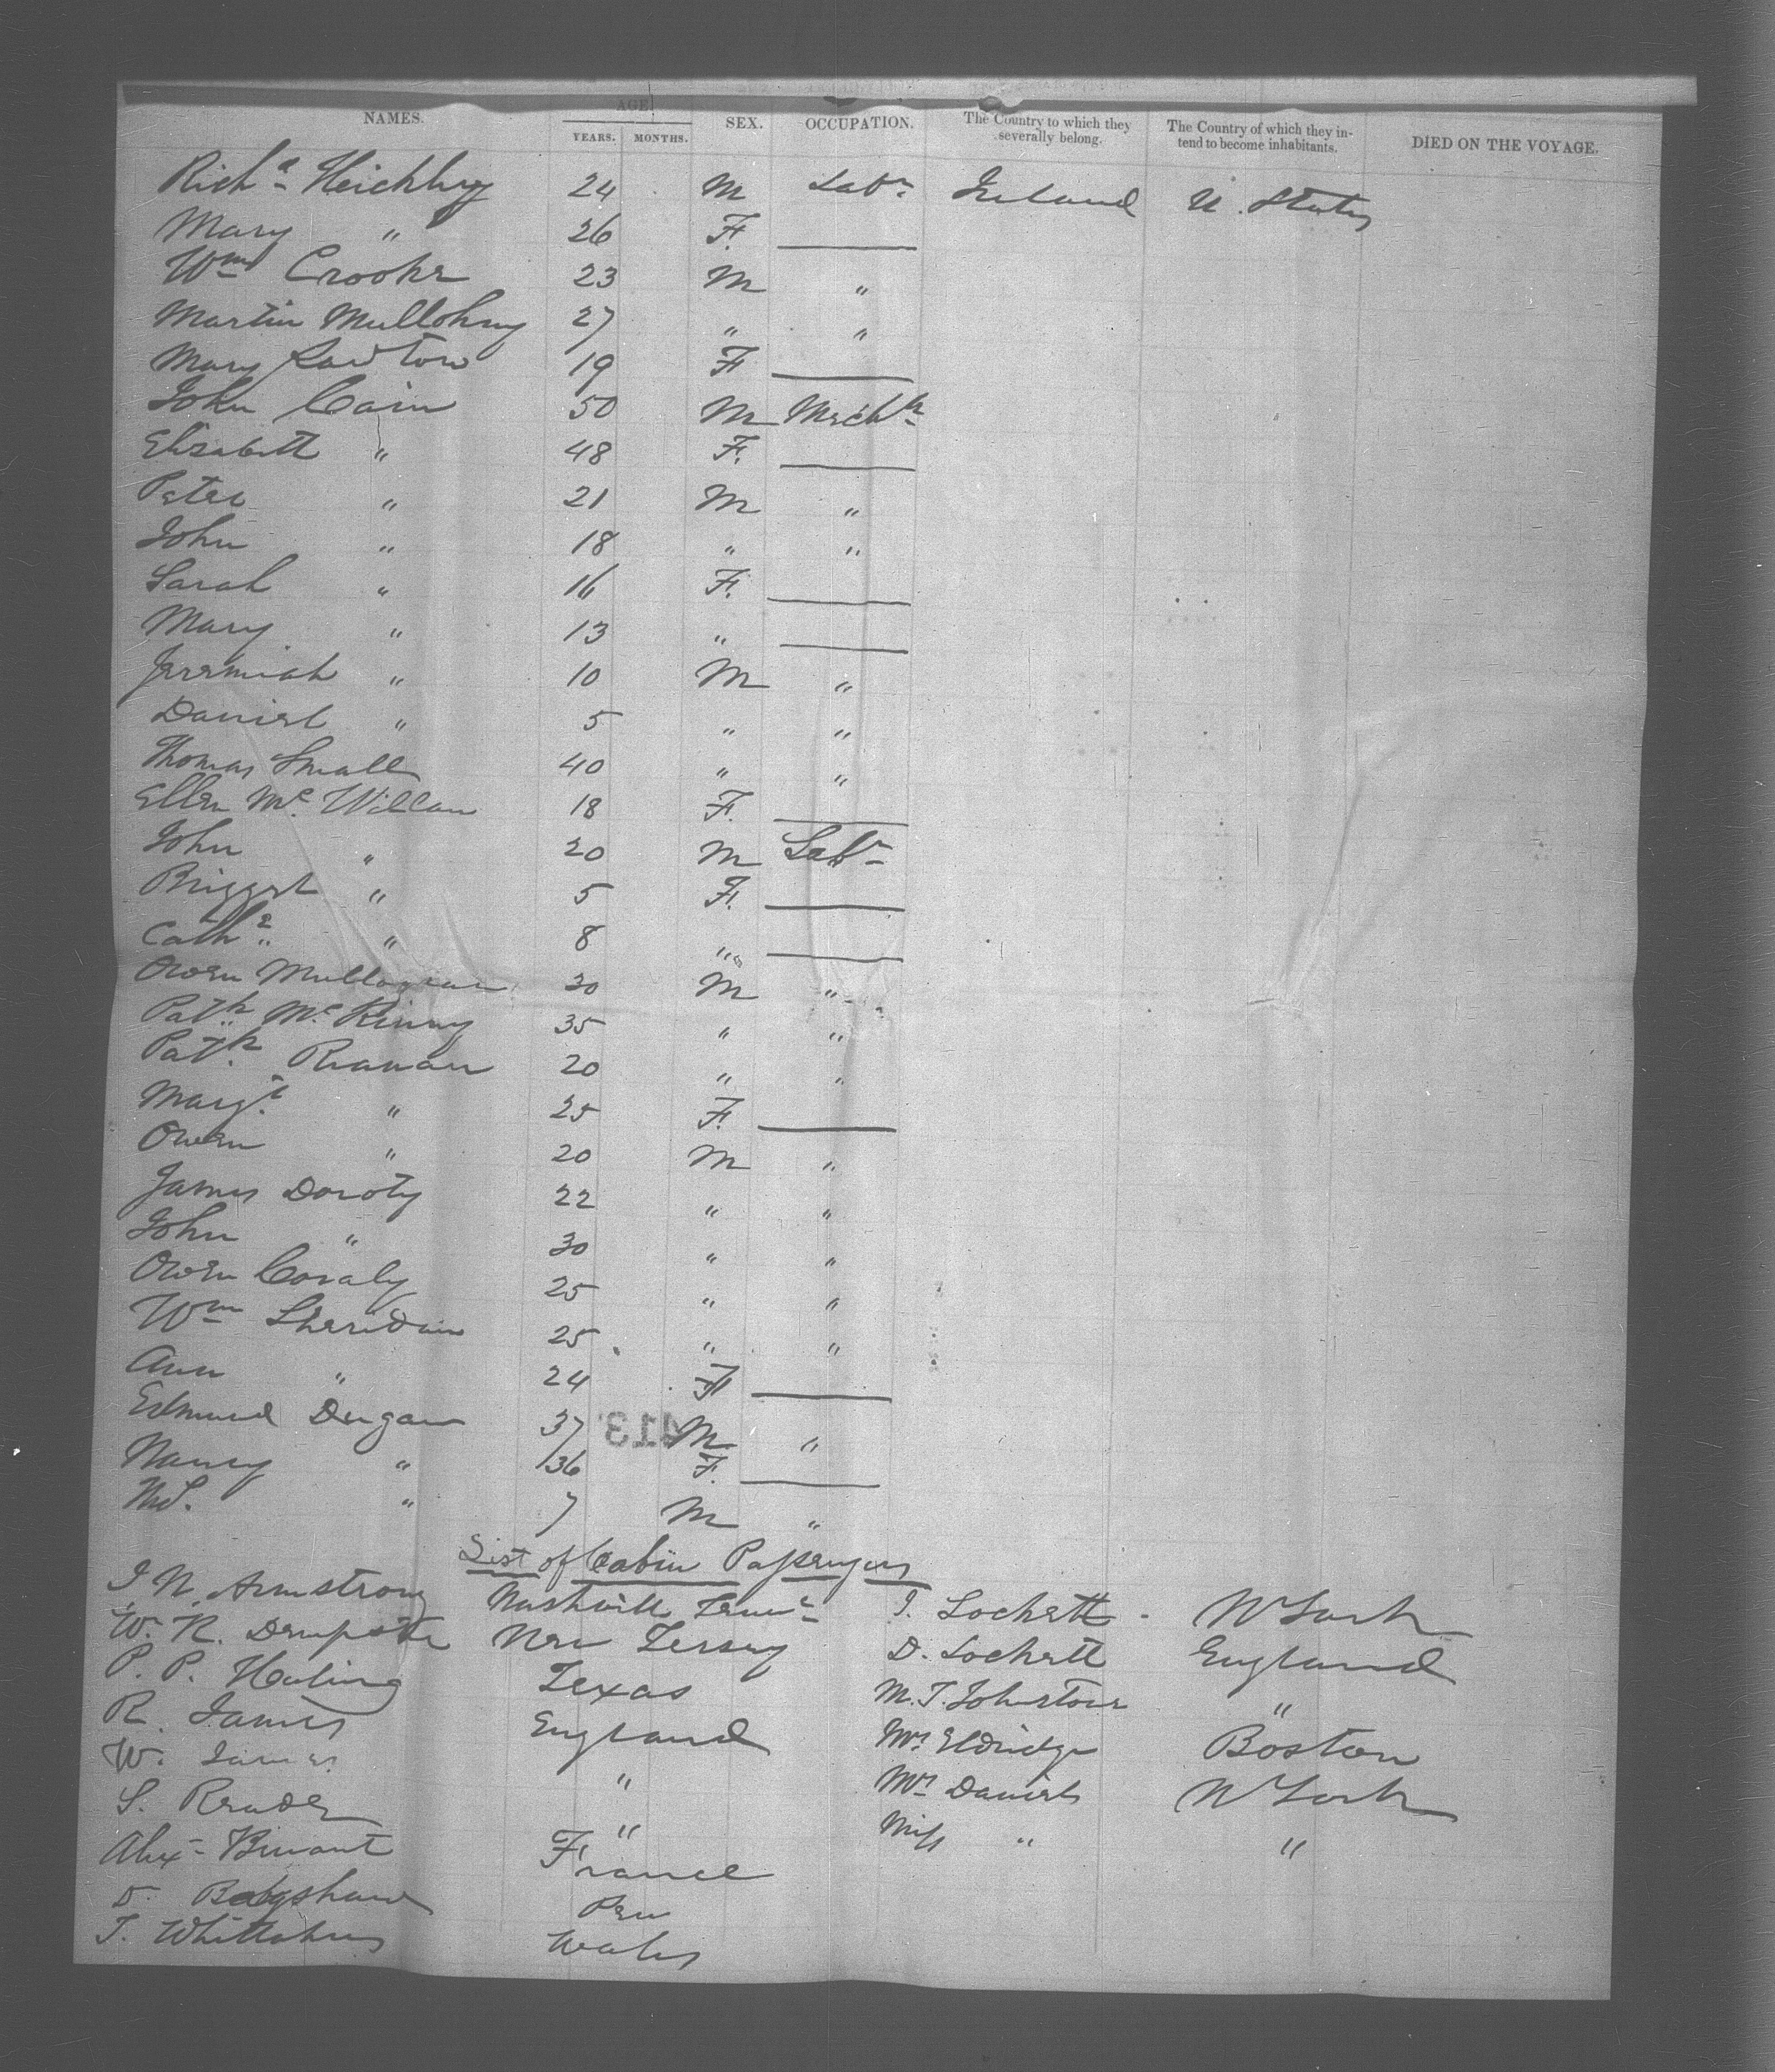 NAMES. AGE. YEARS. MONTHS. SEX. OCCUPATION. The Country to which they severally belong. The Country of which they intend to become inhabitants. DIED ON THE VOYAGE.
Richd Heichbuy 24 M Labr Ireland U. States
Mary " 26 F.
Wm Crooke 23 M "
Martin Mullohny 27 " "
Mary Lawton 19 F
John Cain 50 M Mechk
Elizabett " 48 F.
Peter " 21 M "
John " 18 " "
Sarah " 16 F.
Mary " 13 "
Jeremiah " 10 M "
Daniel " 5 " "
Thomas Small 40 " "
Ellen Mc. Willan 18 F.
John " 20 M Labr
Bridget " 5 F.
Cathe " 8 "
Owen Mullaghan 30 M "
Patk Mc Kinny 35 " "
Patk. Ranan 20 " "
Margt. " 25 F.
Owen " 20 M "
James Doroty 22 " "
John " 30 " "
Owen Coraly 25 " "
Wm Sheridan 25 " "
Ann " 24 F
Edmund Dugan 37 M "
413
Nancy " 36 F.
Md. " 7 M "
List of Cabin Passengers
J. N. Armstrong Nashville Tenne J. Lockett - N York
W. R. Dempster New Jersey D. Lockett England
P. P. Haling Texas M. T. Johnstone "
R. James England Mrs Eldridge Boston
W. James " Mrs Daniels N York
S. Reader " Miss " "
Alex - Bivant France
D. Bagshaw Peru
T. Whittaker Wales